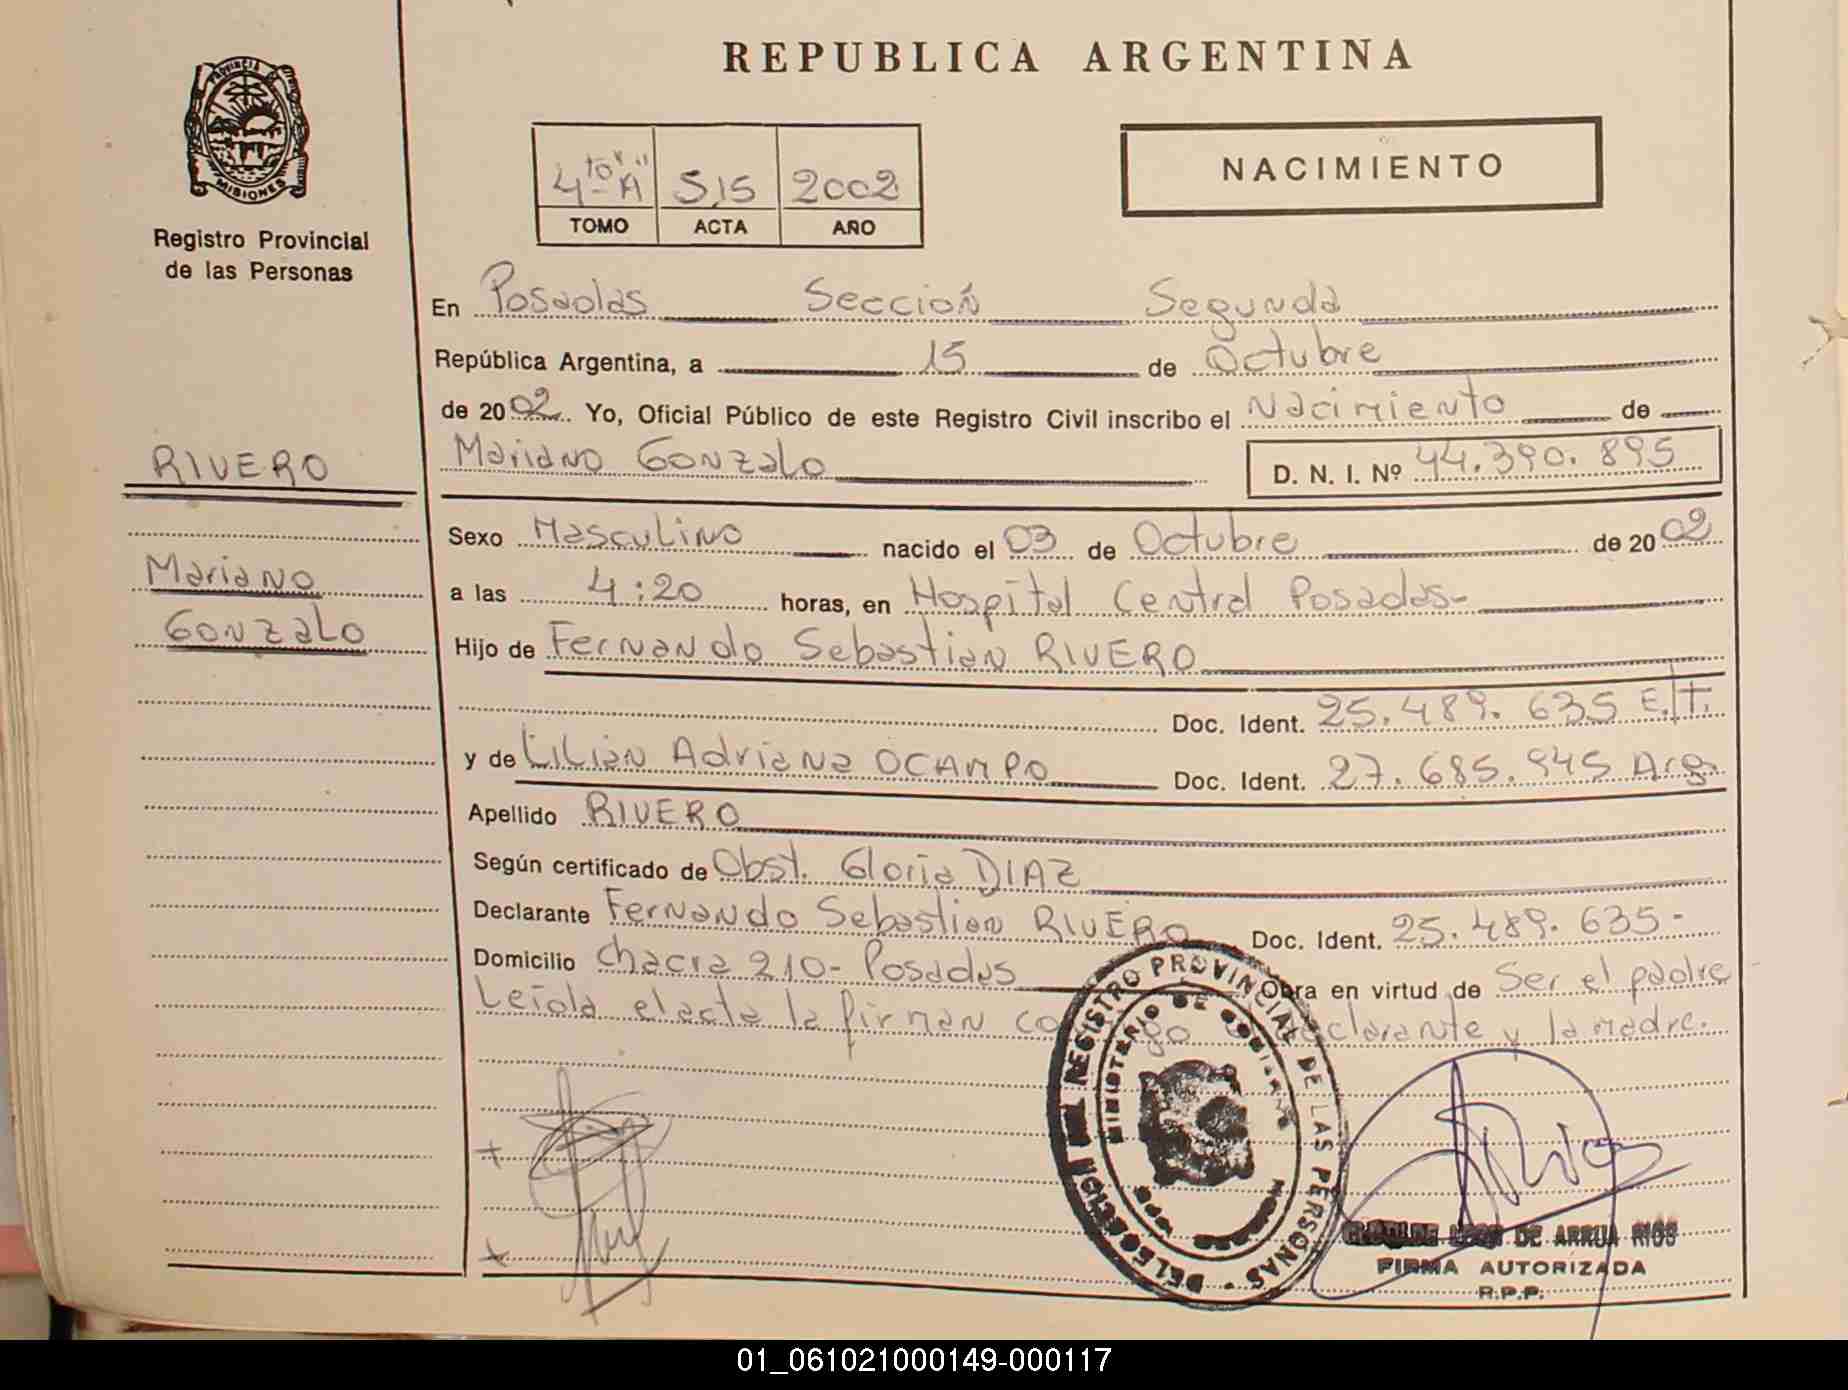 REPUBLICA ARGENTINA
PROVINCIA DE
MISIONES
Registro Provincial
de las Personas
4to "A" 515 2002
TOMO ACTA AÑO
NACIMIENTO
En Posadas Sección Segunda
República Argentina, a 15 de Octubre
de 2002. Yo, Oficial Público de este Registro Civil inscribo el Nacimiento de
RIVERO
Mariano Gonzalo D. N. I. Nº 44.390.895
Sexo Masculino nacido el 03 de Octubre de 2002
Mariano
a las 4:20 horas, en Hospital Central Posadas-
Gonzalo
Hijo de Fernando Sebastian RIVERO
Doc. Ident. 25.489.635 E./T.
y de Lilian Adriana OCAMPO Doc. Ident. 27.685.945 Arg.
Apellido RIVERO
Según certificado de Obst. Gloria DIAZ
Declarante Fernando Sebastian RIVERO Doc. Ident. 25.489.635-
Domicilio Chacra 210- Posadas Obra en virtud de Ser el padre
Leída el acta la firman co go eclarante y la madre.
DELEGACION DEL REGISTRO PROVINCIAL DE LAS PERSONAS
MINISTERIO DE GOBIERNO
DE ARRUA RIOS
FIRMA AUTORIZADA
R.P.P.
01_061021000149-000117